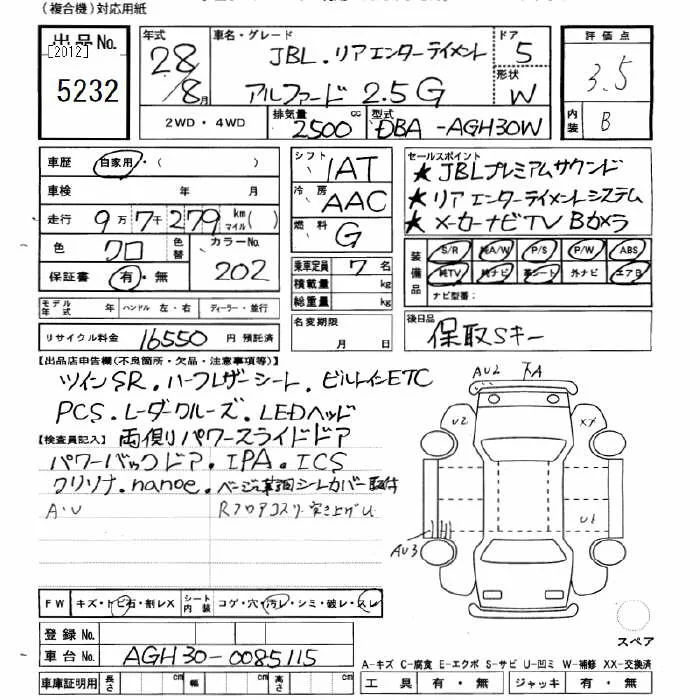 (複合機)対応用紙
出品No.
[2012]
5232
年式
28/8月
車名・グレード
JBL.リアエンターテイメント
アルファード 2.5G
ドア
5
形状
W
評価点
3.5
内装
B
2WD・4WD
排気量
2500cc
型式
DBA-AGH30W
車歴
自家用・( )
車検 年 月
走行
9万7千279
km
マイル( )
色
クロ
色替
カラーNo.
202
保証書
有・無
シフト
IAT
冷房
AAC
燃料
G
乗車定員 7 名
積載量 kg
総重量 kg
セールスポイント
★JBLプレミアムサウンド
★リアエンターテイメントシステム
★メーカーナビTV Bカメラ
装備品
S/R
純A/W
P/S
P/W
ABS
純TV
純ナビ
革シート
外ナビ
エアB
ナビ型番:
モデル年式 年
ハンドル 左・右
ディーラー・並行
名変期限
月 日
後日品
保取Sキー
リサイクル料金 16550 円 預託済
【出品店申告欄(不良箇所・欠品・注意事項等)】
ツインSR.ハーフレザーシート.ビルトインETC
PCS.レーダクルーズ.LEDヘッド
【検査員記入】
両側パワースライドドア
パワーバックドア.IPA.ICS
クリソナ.nanoe.ベージュ革調シートカバー取付
A・U
Rフロアコスリ・突き上げU
AU2
下A
U2
XT
U1
AU3
FW
キズ・トビ石・割レX
シート内装
コゲ・穴・汚レ・シミ・破レ・スレ
スペア
登録No.
車台No.
AGH30-0085115
A-キズ C-腐食 E-エクボ S-サビ U-凹ミ W-補修 XX-交換済
車庫証明用
長さ cm
幅 cm
高さ cm
工具 有・無
ジャッキ 有・無